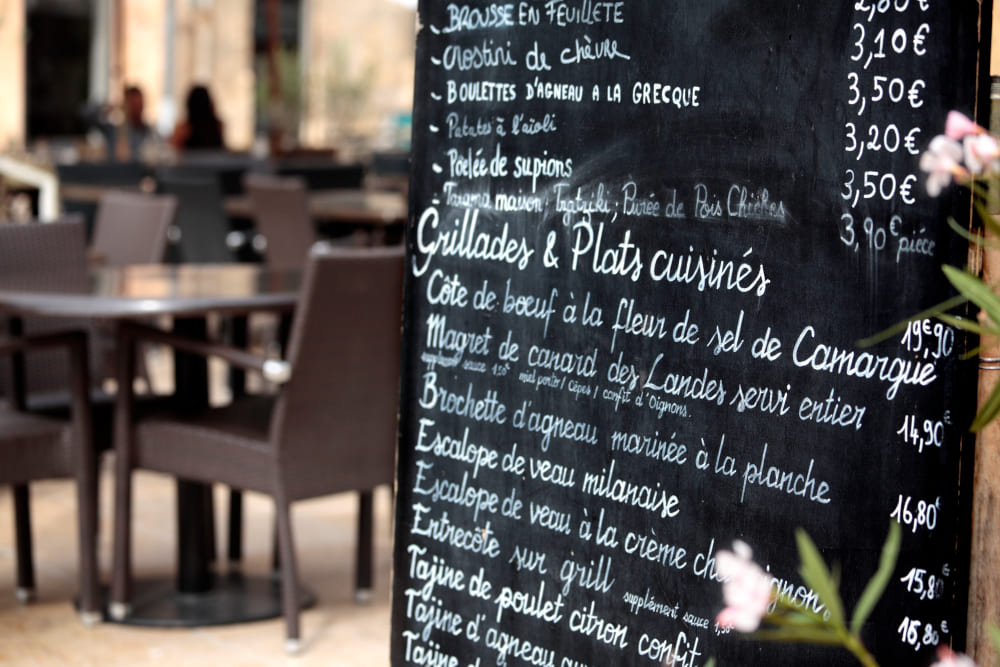 - BROUSSE EN FEUILLETÉ
- Crostini de chèvre 3,10€
- BOULETTES D'AGNEAU A LA GRECQUE 3,50€
- Patates à l'aïoli 3,20€
- Poêlée de supions 3,50€
- Tarama maison, Tzatziki, Purée de Pois Chiches 3,90€ pièce
Grillades & Plats cuisinés
Côte de boeuf à la fleur de sel de Camargue 19€90
Magret de canard des Landes servi entier 14,90€
supplément sauce 1,50€ miel porto / Cèpes / confit d'Oignons.
Brochette d'agneau marinée à la planche 16,80€
Escalope de veau milanaise 15,8
Escalope de veau à la crème 16,80
Entrecôte sur grill supplément sauce
Tajine de poulet citron confit
Tajine d'agneau
Tajine